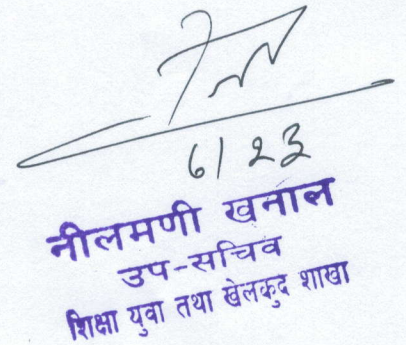 ६/२३
नीलमणी खनाल
उप-सचिव
शिक्षा युवा तथा खेलकुद शाखा